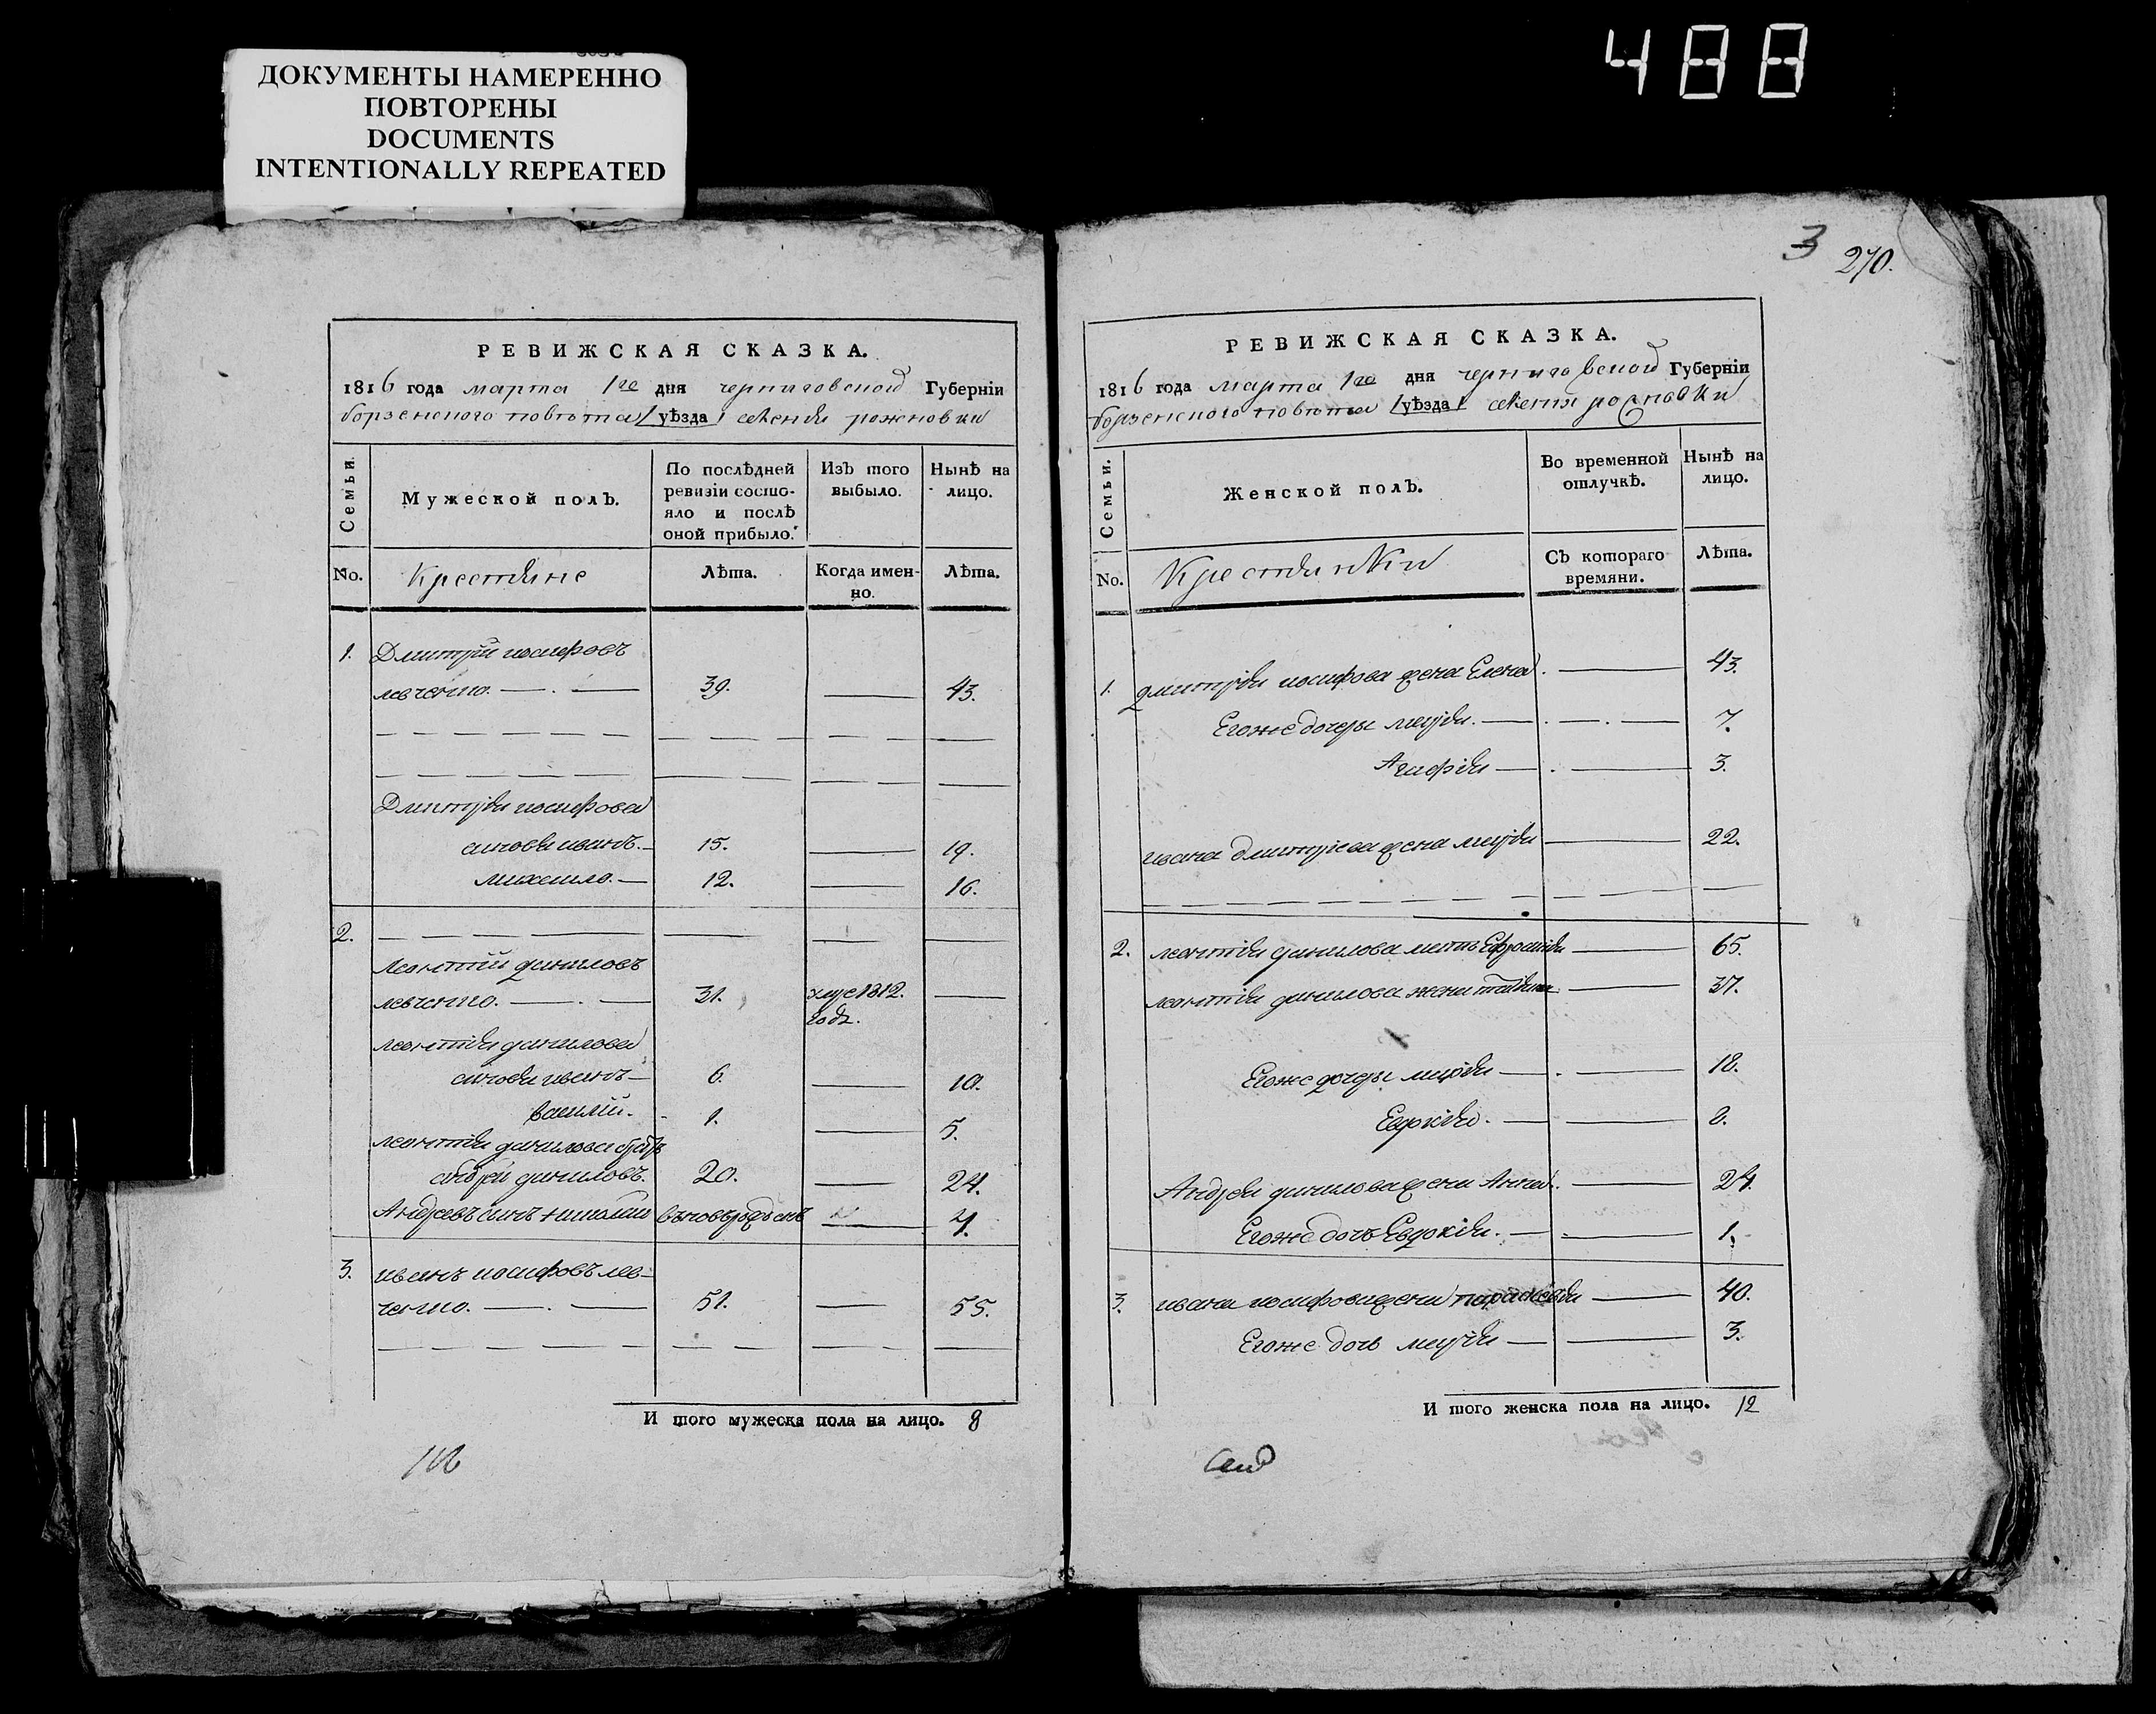 ДОКУМЕНТЫ НАМЕРЕННО
ПОВТОРЕНЫ
DOCUMENTS
INTENTIONALLY REPEATED
488
РЕВИЖСКАЯ СКАЗКА.
1816 года марта 1го дня черниговской Губерніи
борзенского повѣта /уѣзда/ селенія рожновки
Семьи.
Мужеской полъ.
По послѣдней
ревизіи состо-
яло и послѣ
оной прибыло.
Изъ того
выбыло.
Нынѣ на
лицо.
No.
Крестяне
Лѣта.
Когда имен-
но.
Лѣта.
1. Дмитрій иосифовъ
левченко. 39. 43.
Дмитрія иосифова
синовя иванъ. 15. 19.
михаило. 12. 16.
2.
Леонтій даниловъ
левченко. 31. 1812.
годѣ.
леонтія данилова
синовя иванъ 6. 10.
василій. 1. 5.
леонтія данилова братъ
андрей даниловъ. 20. 24.
Андреевъ синъ николай вновърожденъ 4.
3. иванъ иосифовъ лев-
ченко. 51. 55.
И того мужеска пола на лицо. 8
3 270.
РЕВИЖСКАЯ СКАЗКА.
1816 года марта 1го дня черниговской Губерніи
борзенского повѣта /уѣзда/ селенія рожновки
Семьи.
Женской полъ.
Во временной
отлучкѣ.
Нынѣ на
лицо.
No.
Крестянки
Съ котораго
времяни.
Лѣта.
1. дмитрія иосифова жена Елена. 43.
Егоже дочеры марія. 7.
Агафія 3.
ивана дмитріева жена марія 22.
2. леонтія данилова мать Ефросинія 65.
леонтія данилова жена 37.
Егоже дочеры марія 18.
Евдокія. 8.
Андрея данилова жена Анна. 24.
Егоже дочь Евдокія. 1.
3. ивана иосифова жена параскевія 40.
Егоже дочь марія 3.
И того женска пола на лицо. 12